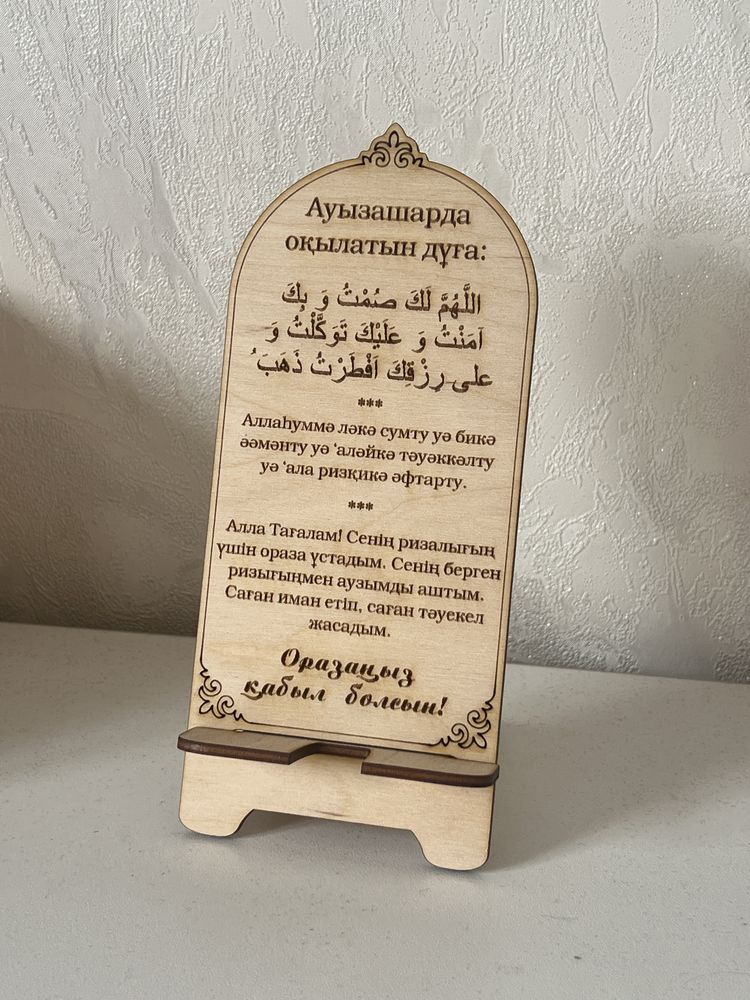 Ауызашарда
оқылатын дұға:
اللَّهُمَّ لَكَ صُمْتُ وَ بِكَ
اَمَنْتُ وَ عَلَيْكَ تَوَكَّلْتُ وَ
على رِزْقِكَ اَفْطَرْتُ ذَهَبَ ُ
***
Аллаһуммә ләкә сумту уә бикә
әәмәнту уә ‘аләйкә тәуәккәлту
уә ‘ала ризқикә әфтарту.
***
Алла Тағалам! Сенің ризалығың
үшін ораза ұстадым. Сенің берген
ризығыңмен аузымды аштым.
Саған иман етіп, саған тәуекел
жасадым.
Оразаңыз
қабыл болсын!